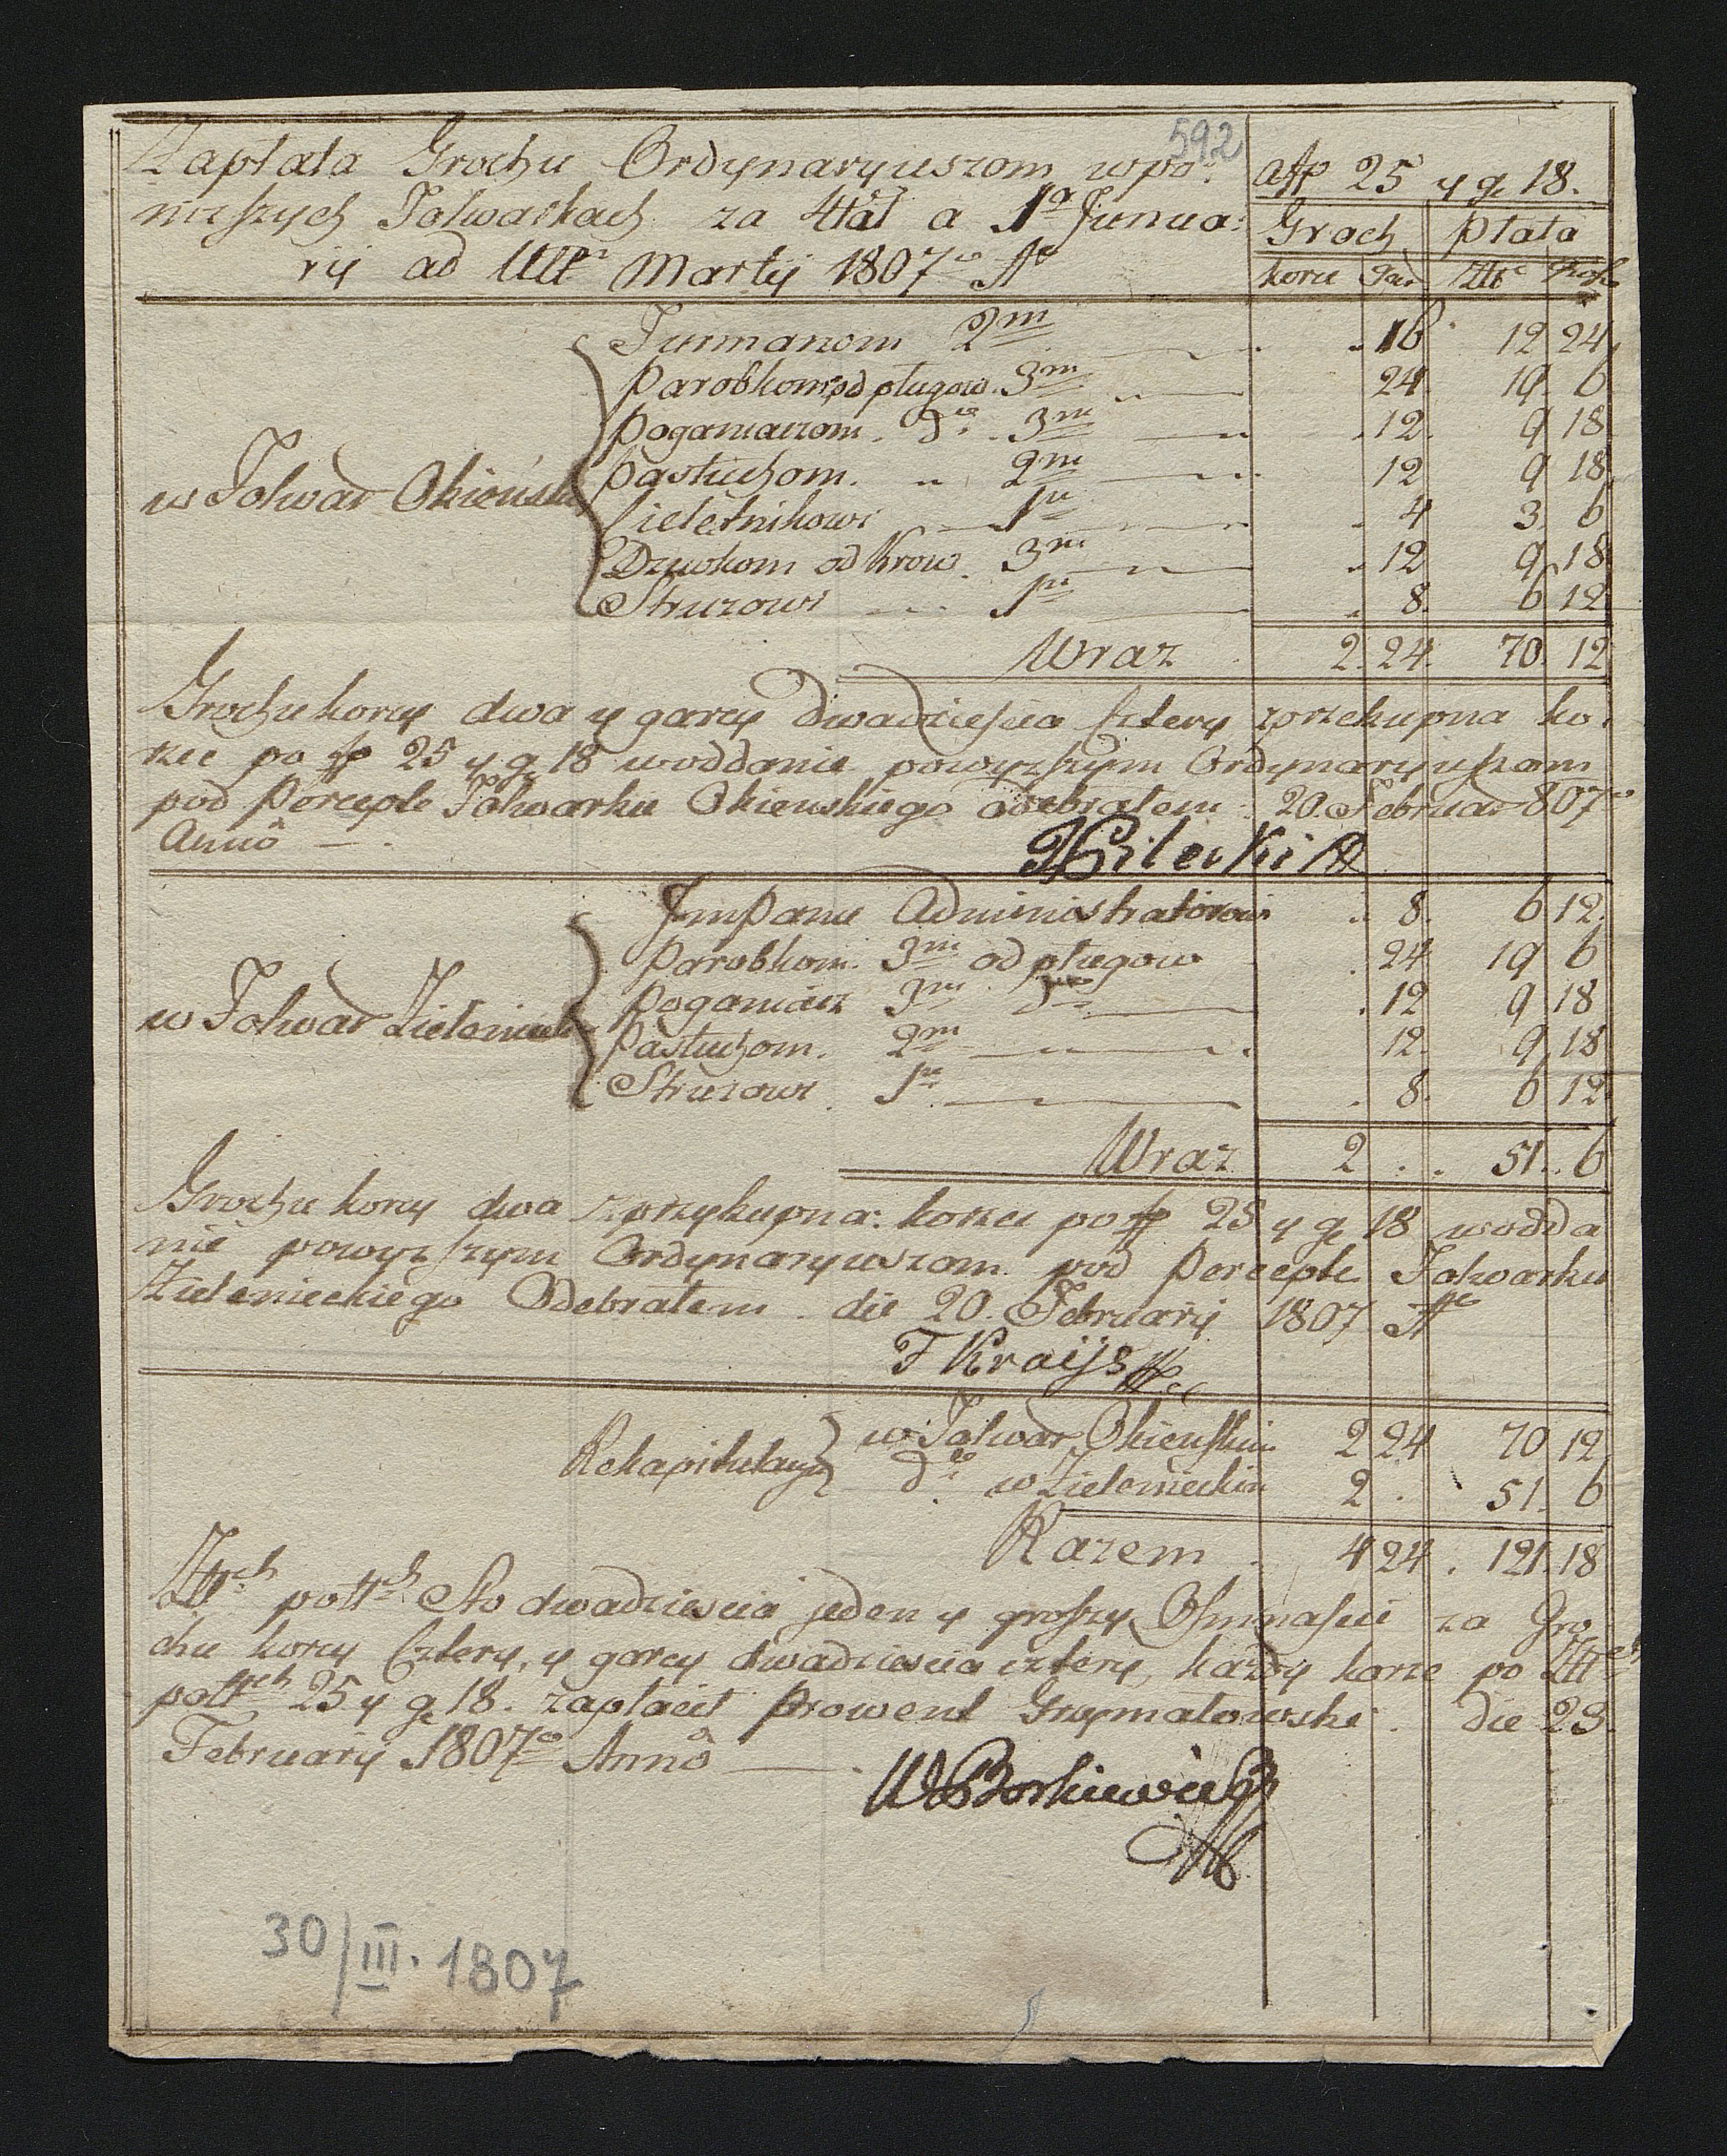 592
Zapłata Grochu Ordynaryuszom wpo: a fp 25 y g. 18.
niższych Folwarkach za 4tał a 1a Junua: Groch płata
rij ad Ult: Martij 1807o Ao korce Gar Złt Grosz
Furmanom 2m 16 12 24
Parobkom od pługow. 3m 24 19 6
Poganiaczom. do. 3m 12. 9 18
w Folwar Okieńsk Pastuchom. „ 2m 12 9 18
Cieletnikowi 1u 4 3 6
Dziwkom od Krow. 3m 12 9 18
Struzowi 1u 8. 6 12
Wraz 2. 24. 70. 12
Grochu korcy dwa y garcy dwadzieścia Cztery zprzekupna ko:
rzec po fp 25 y g 18 woddanie powyzszym Ordynaryuszom
pod Percepte Folwarku Okienskiego odebrałem: 20. Februar 807o
Annô —.
w Folwar Zieleniec
JmPanu Administratorowi 8. 6 12.
Parobkom. 3m od pługow 24 19 6
Poganiacz 3m do 12 9 18
Pastuchom. 2m 12. 9 18
Struzowi. 1u 8. 6 12
Wraz 2 . . 51. 6
Grochu korcy dwa zprzykupna: korzec po fp 25 y g 18 wodda
nie powyzszym Ordynaryuszom pod Percepte Folwarku
Zielenieckiego Odebrałem. die 20. Februarij 1807 Ao
F Kraijs
Rekapitulacya w Folwar Okieńskim 2 24 70 12
do w Zielenieckim 2 . 51. 6
Razem . 4 24 . 121. 18
Złtch poltch Sto dwadzieścia jeden y groszy Osmnaście za Gro
chu korcy Cztery, y garcy dwadzieścia cztery, każdy korzec po Złtch
poltch 25 y g 18. zapłacił Prowent Grzymałowski. die 23
Februarij 1807o Annô —.
W Borkiewicz
30/III. 1807